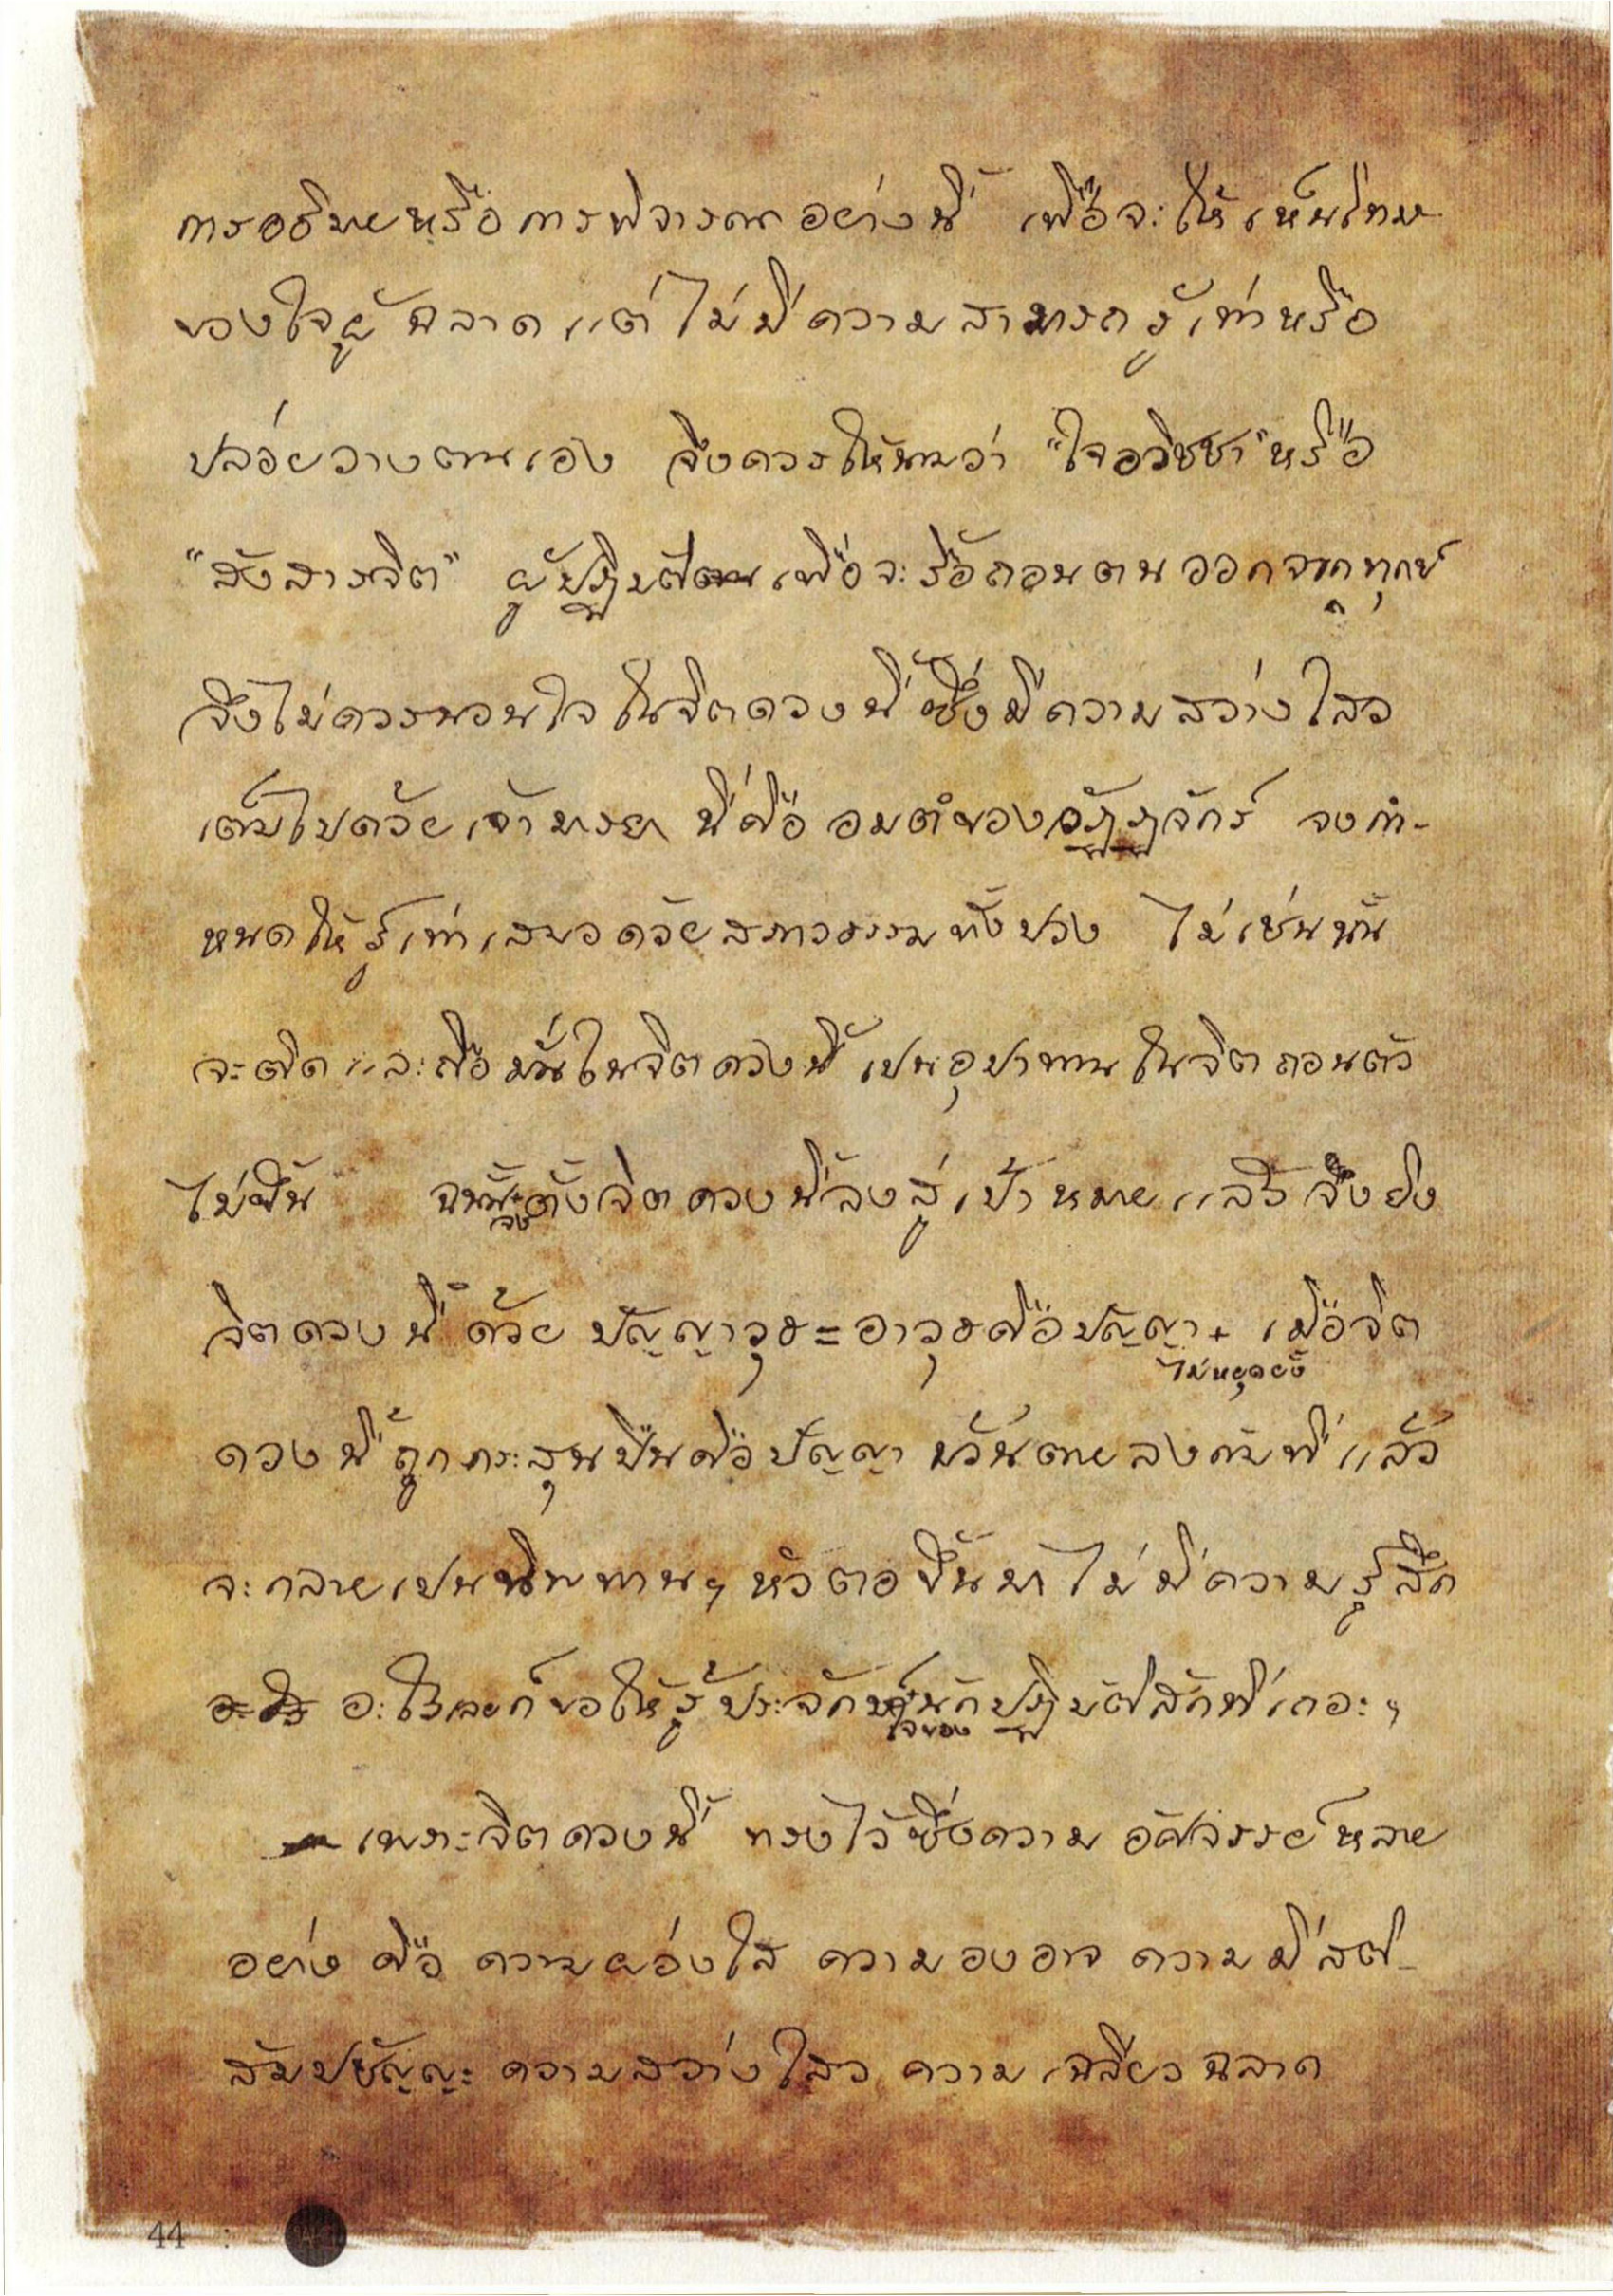 การอธิบายหรือการพิจารณาอย่างนี้ เพื่อจะให้เห็นโทษ
ของใจผู้ฉลาดแต่ไม่มีความสามารถรู้เท่าหรือ
ปล่อยวางตนเอง จึงควรให้นามว่า "ใจอวิชชา" หรือ
"สังสารจิต" ผู้ปฏิบัติตนเพื่อจะรื้อถอนตนออกจากทุกข์
จึงไม่ควรนอนใจในจิตดวงนี้ซึ่งมีความสว่างไสว
เต็มไปด้วยเจ้ามารยา นี่คือ อมตํของวัฏฏจักร์ จงกำ-
หนดให้รู้เท่าเสมอด้วยสภาวธรรมทั้งปวง ไม่เช่นนั้น
จะติดและถือมั่นในจิตดวงนี้ เปนอุปาทานในจิตถอนตัว
ไม่ขึ้น ฉนั้นจงตั้งจิตดวงนี้ลงสู่เป้าหมายแล้วจึงยิง
จิตดวงนี้ด้วย ปัญญาวุธ=อาวุธคือปัญญา+ เมื่อจิต
ไม่หยุดยั้ง
ดวงนี้ถูกกระสุนปืนคือปัญญา ม้วนตายลงกับที่แล้ว
จะกลายเปนนิพพานๆ หัวตอขึ้นมา ไม่มีความรู้สึก
อะไร อะไรเลยก็ขอให้รู้ประจักษ์ใจของนักปฏิบัติสักทีเถอะๆ
เพราะจิตดวงนี้ ทรงไว้ซึ่งความอัศจรรย์หลาย
อย่าง คือ ความผ่องใส ความองอาจ ความมีสติ-
สัมปชัญญะ ความสว่างไสว ความเฉลียวฉลาด
44 :